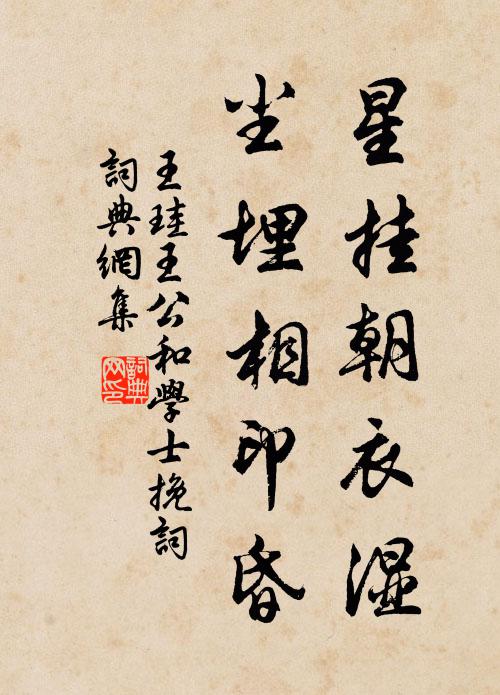 星挂朝衣湿
尘埋相印昏
王珪王公和學士挽詞
詞典網集
詞典網印